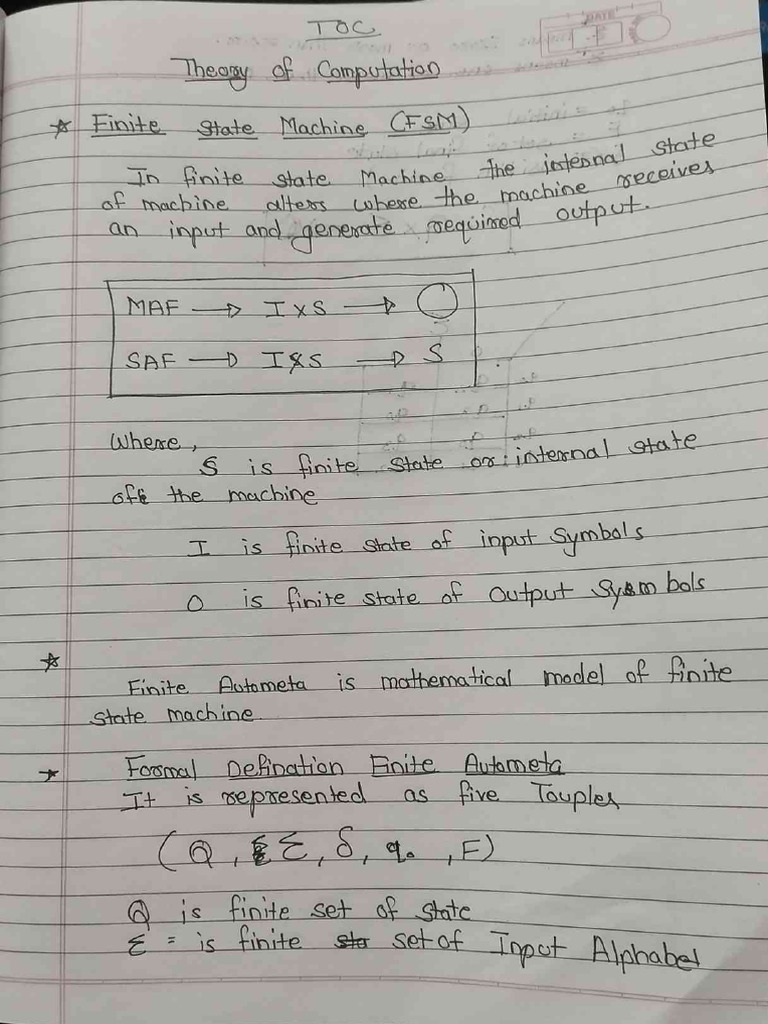 TOC
DATE
Theory of Computation
☆ Finite State Machine (FSM)
In finite state Machine the internal state
of machine alters where the machine receives
an input and generate required output.
MAF → I x S → O
SAF → I x S → S
Where,
S is finite state or internal state
of the machine
I is finite state of input symbols
O is finite state of output Symbols
☆
Finite Autometa is mathematical model of finite
state machine
☆ Formal Defination Finite Autometa
It is represented as five Touples
(Q, Σ, δ, q₀, F)
Q is finite set of state
Σ = is finite set of Input Alphabet